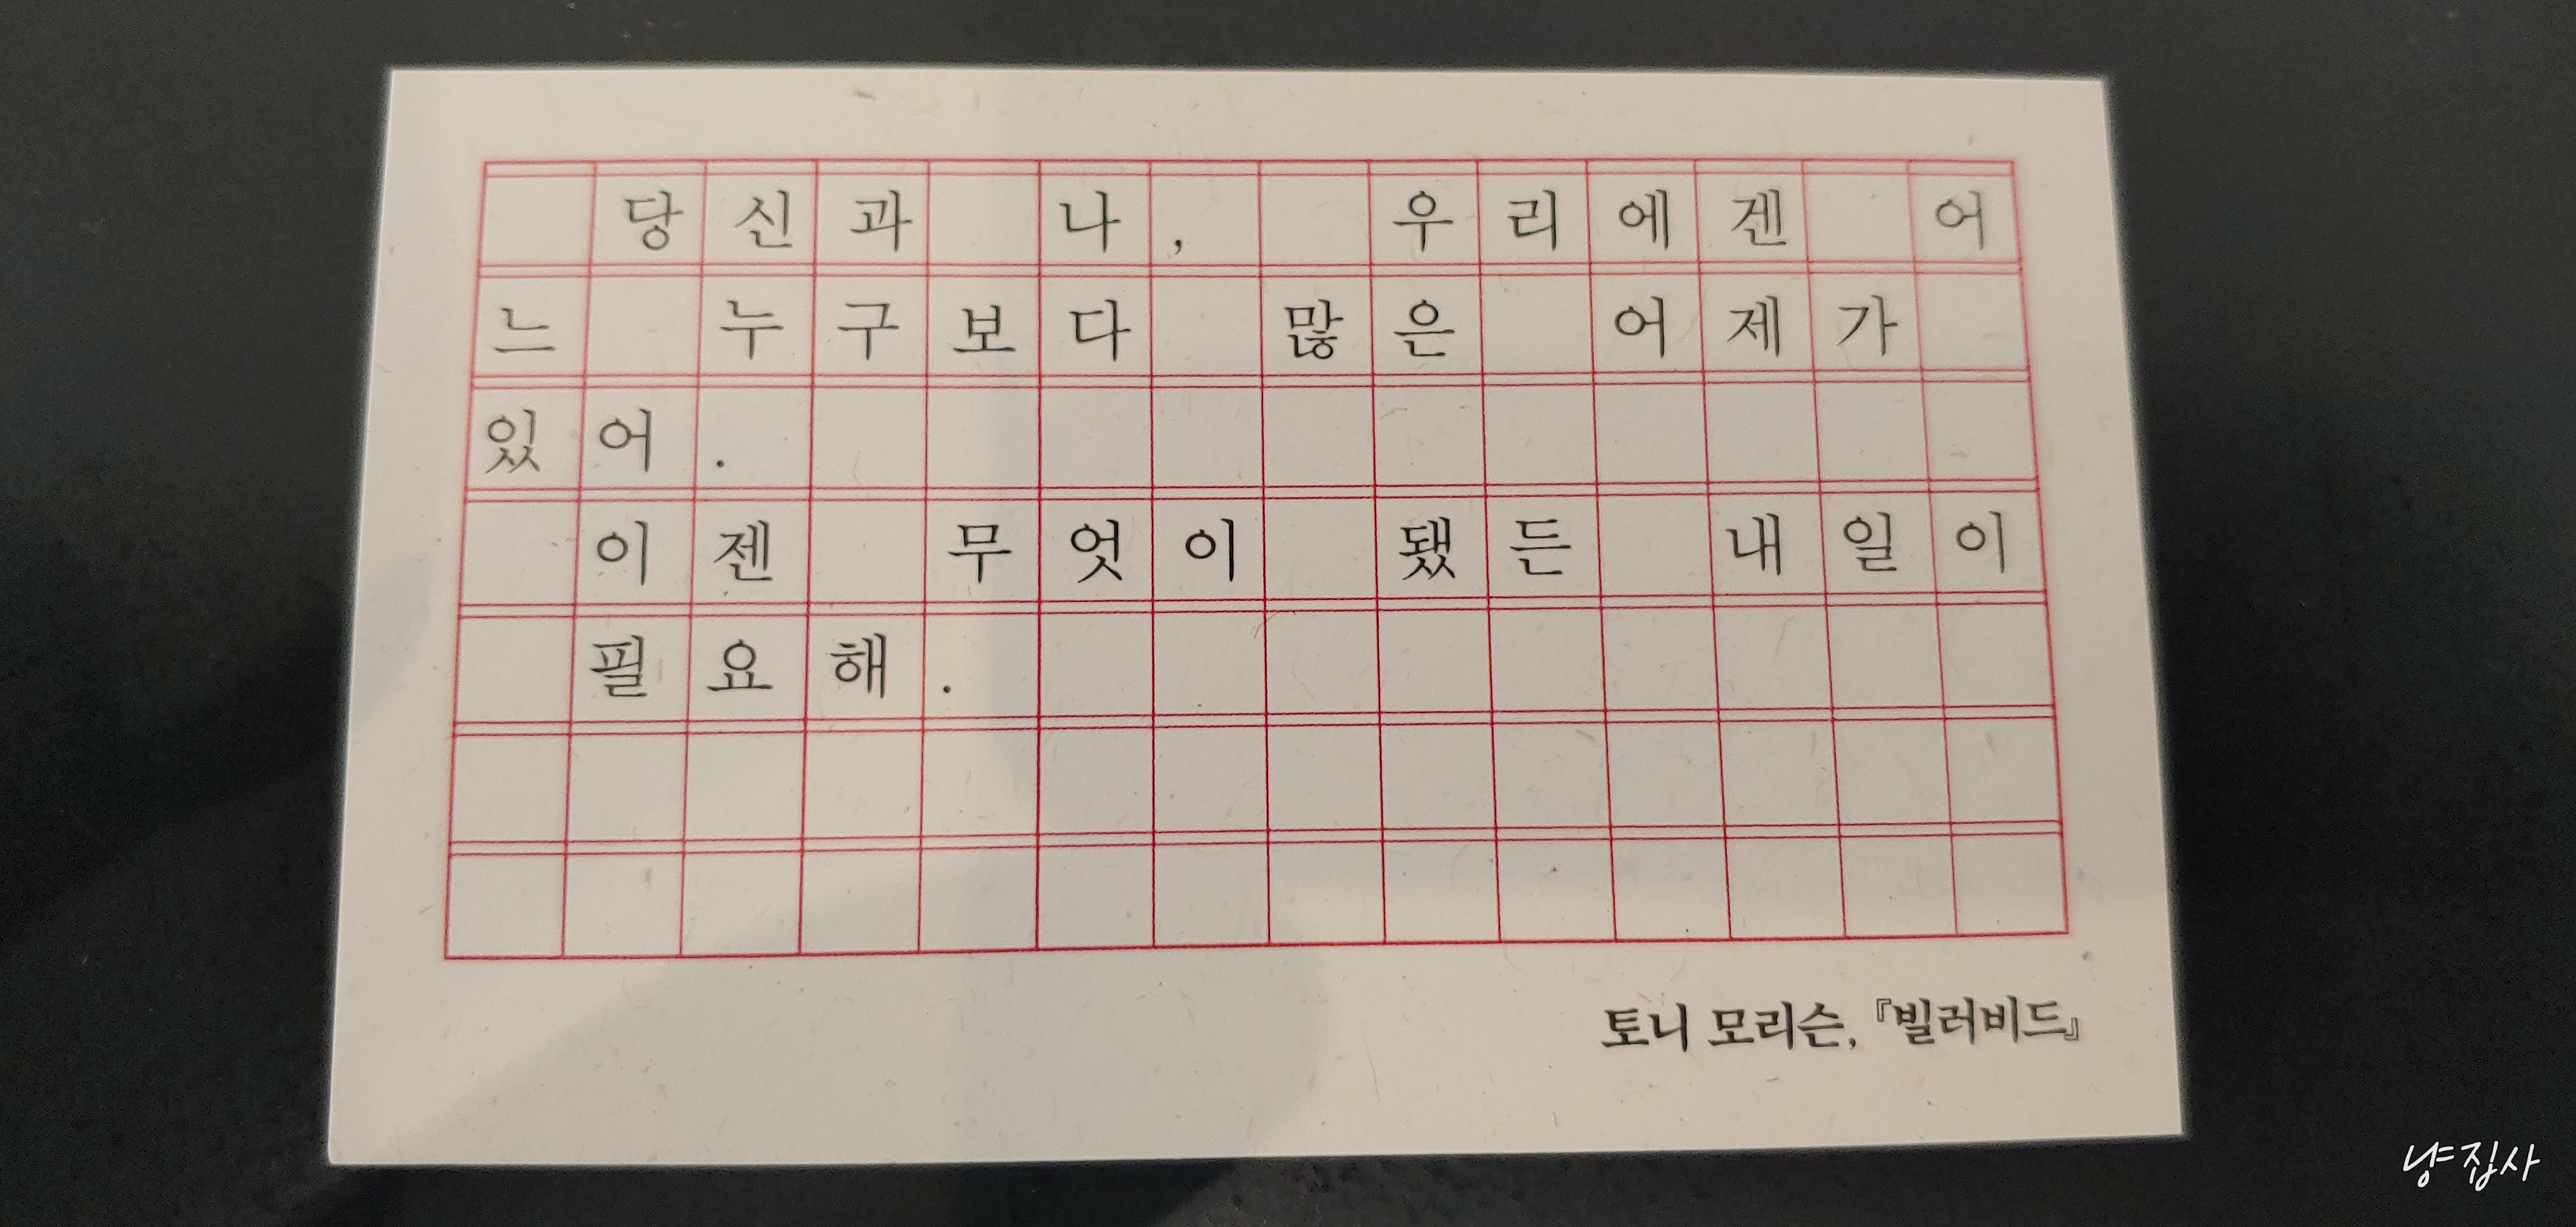 당신과 나, 우리에겐 어
느 누구보다 많은 어제가
있어.
이젠 무엇이 됐든 내일이
필요해.
토니 모리슨, 『빌러비드』
냥집사